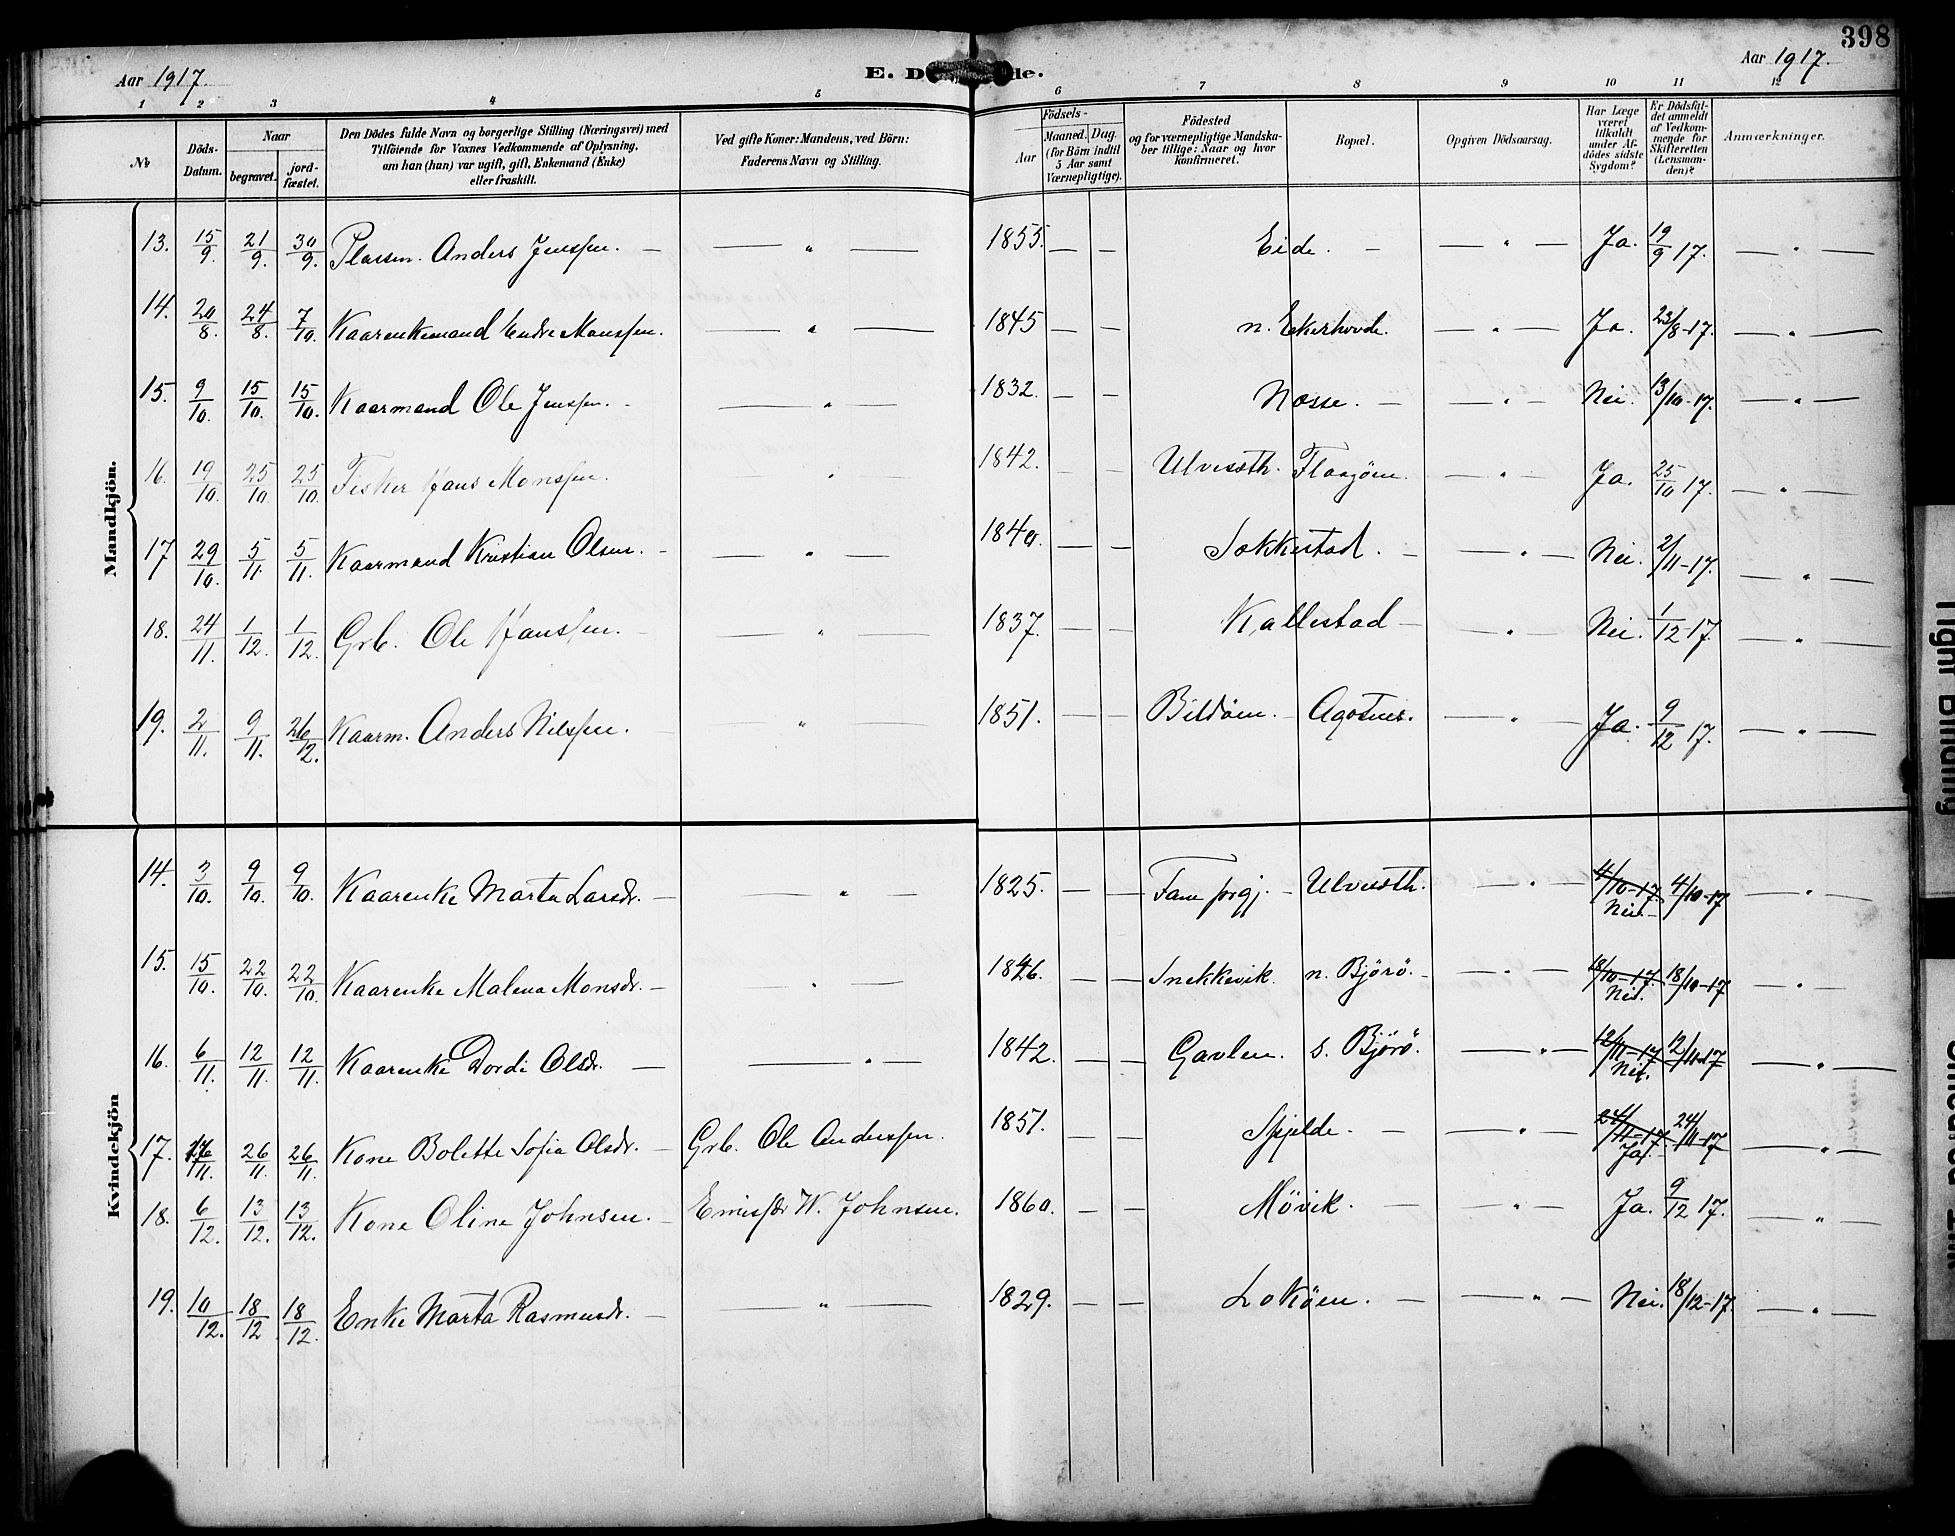 398
Aar 1917.
E. D de.
Aar 1917.
1 2 3 4 5 6 7 8 9 10 11 12
No
Döds-Datum.
Naar
begravet.
jord-fæstet.
Den Dödes fulde Navn og borgerlige Stilling (Næringsvei) med
Tilföiende for Voxnes Vedkommende af Oplysning,
om han (hun) var ugift, gift, Enkemand (Enke)
eller fraskilt.
Ved gifte Koner: Mandens, ved Börn:
Faderens Navn og Stilling.
Födsels-
Aar
Maaned. Dag.
(for Börn indtil
5 Aar samt
Værnepligtige).
Födested
og for værnepligtige Mandska-
ber tillige: Naar og hvor
konfirmeret.
Bopæl.
Opgiven Dödsaarsag.
Har Læge
været
tilkaldt
under Af-
dödes sidste
Sygdom?
Er Dödsfal-
det anmeldt
af Vedkom-
mende for
Skifteretten
(Lensman-
den)?
Anmærkninger.
Mandkjön.
13. 15/9. 21/9. 30/9. Plassm. Anders Jenssen. — — " — 1855. — — Eide. — — " — Ja. 19/9 17. — " —
14. 20/8. 24/8. 7/10. Kaarenkemand Endre Monssen. — " — 1845 — — n. Ekerhovde. — " — Ja. 23/8-17. — " —
15. 9/10. 15/10. 15/10. Kaarmand Ole Jenssen. — " — 1832. — — Næsse. — — " — Nei. 13/10-17. — " —
16. 19/10. 25/10. 25/10. Fisker Hans Monssen. " 1842. — — Ulvessth. Flaagöen. — " — Ja. 25/10 17. — " —
17 29/10. 5/11. 5/11. Kaarmand Kristian Olsen. — — " — 1840. — — Sekkestad. — — " — Nei. 2/11-17. — " —
18. 24/11. 1/12. 1/12. Grb. Ole Hanssen. — — " — 1837. — — Kallestad — — " — Nei. 1/12-17. — " —
19. 2/11. 9/11. 26/12. Kaarm. Anders Nilssen. — " 1851. — — Bildöen. — Agotnes. — " — Ja. 9/12 17. — " —
Kvindekjön
14. 3/10. 9/10. 9/10. Kaarenke Marta Larsdr. — — " — 1825. — — Fane prgj. — Ulvessth. — " — 4/10-17. Nei. 4/10-17 — " —
15. 15/10. 22/10. 22/10. Kaarenke Malena Monsdr. — — " — 1846. — — Snekkevik. n. Björö. — — " — 18/10-17. Nei. 18/10-17 — " —
16. 6/11. 12/11. 12/11. Kaarenke Dordi Olsdr. — — " — 1842. — — Gavlen. s. Björö. — " — 12/11-17 Nei. 12/11-17 — " —
17. 16/11. 26/11. 26/11. Kone Bolette Sofia Olsdr. — Grb. Ole Anderssen. 1851. — — Spjelde. — — " — 24/11-17 Ja. 24/11-17 — " —
18. 6/12. 13/12. 13/12. Kone Oline Johnsen. — Emissær W. Johnsen. 1860. — — Mövik. — — " — Ja. 9/12 17. — " —
19. 10/12. 18/12 18/12. Enke Marta Rasmusdr. — — " — 1829. — — Loköen. — — " — Nei. 18/12-17. — " —
Tight Binding